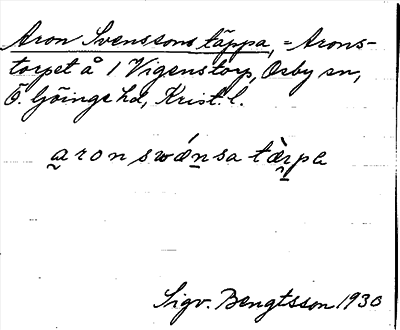 Aron Svenssons täppa, = Arons-
torpet å 1 Vigenstorp, Osby sn,
Ö. Göinge hd, Krist. l.
a̰ron swǽn̰sa tæ̀r̰pa
Sigv. Bengtsson 1930